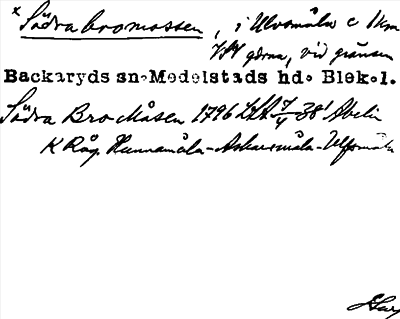 x Södra bromossen, i Ulvsmåla c 1km
VSV gdrna, vid gränsen
Backaryds sn. Medelstads hd. Blek.l.
Södra Bro Måsen 1796 LSA 7/4 38¹ Abelin
K Råg Hunnamåla-Askaremåla-Ulfsmåla